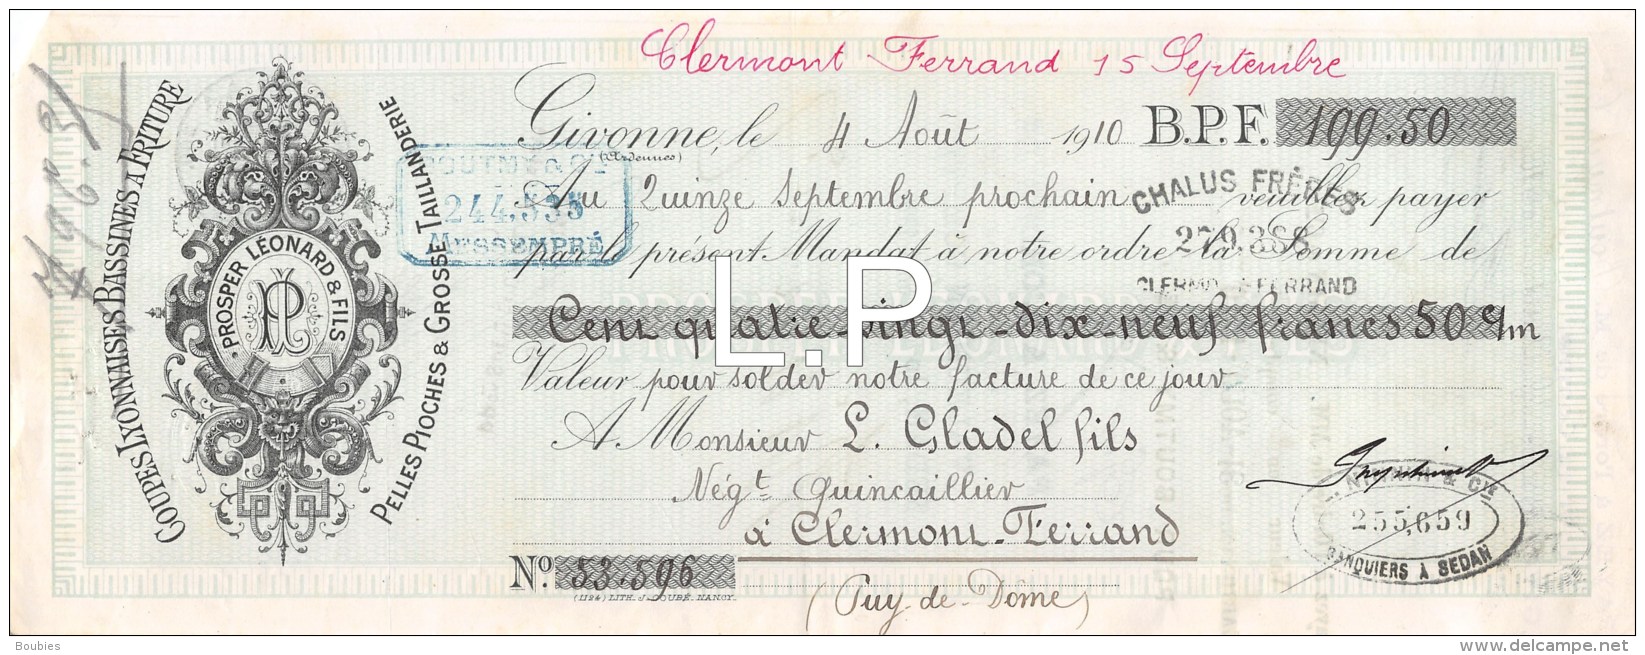 Clermont Ferrand 15 Septembre
Givonne, le 4 Août 1910 B.P.F. 199.50
(Ardennes)
Au Quinze Septembre prochain veuillez payer
par le présent Mandat à notre ordre la Somme de
Cent quatre-vingt-dix-neuf francs 50 c/m
Valeur pour solder notre facture de ce jour
A Monsieur L. Gladel fils
Négt Quincaillier
à Clermont-Ferrand
(Puy-de-Dôme)
No. 53.596
(1124) LITH. J. COUBÉ. NANCY.
COUPES LYONNAISES BASSINES A FRITURE
PROSPER LÉONARD & FILS
PL
PELLES PIOCHES & GROSSE TAILLANDERIE
& Cie
244,535
MESSEMPRÉ
CHALUS FRÈRES
CLERMONT-FERRAND
& Cie
255,659
BANQUIERS À SEDAN
L.P
Boubies
www.delcampe.net